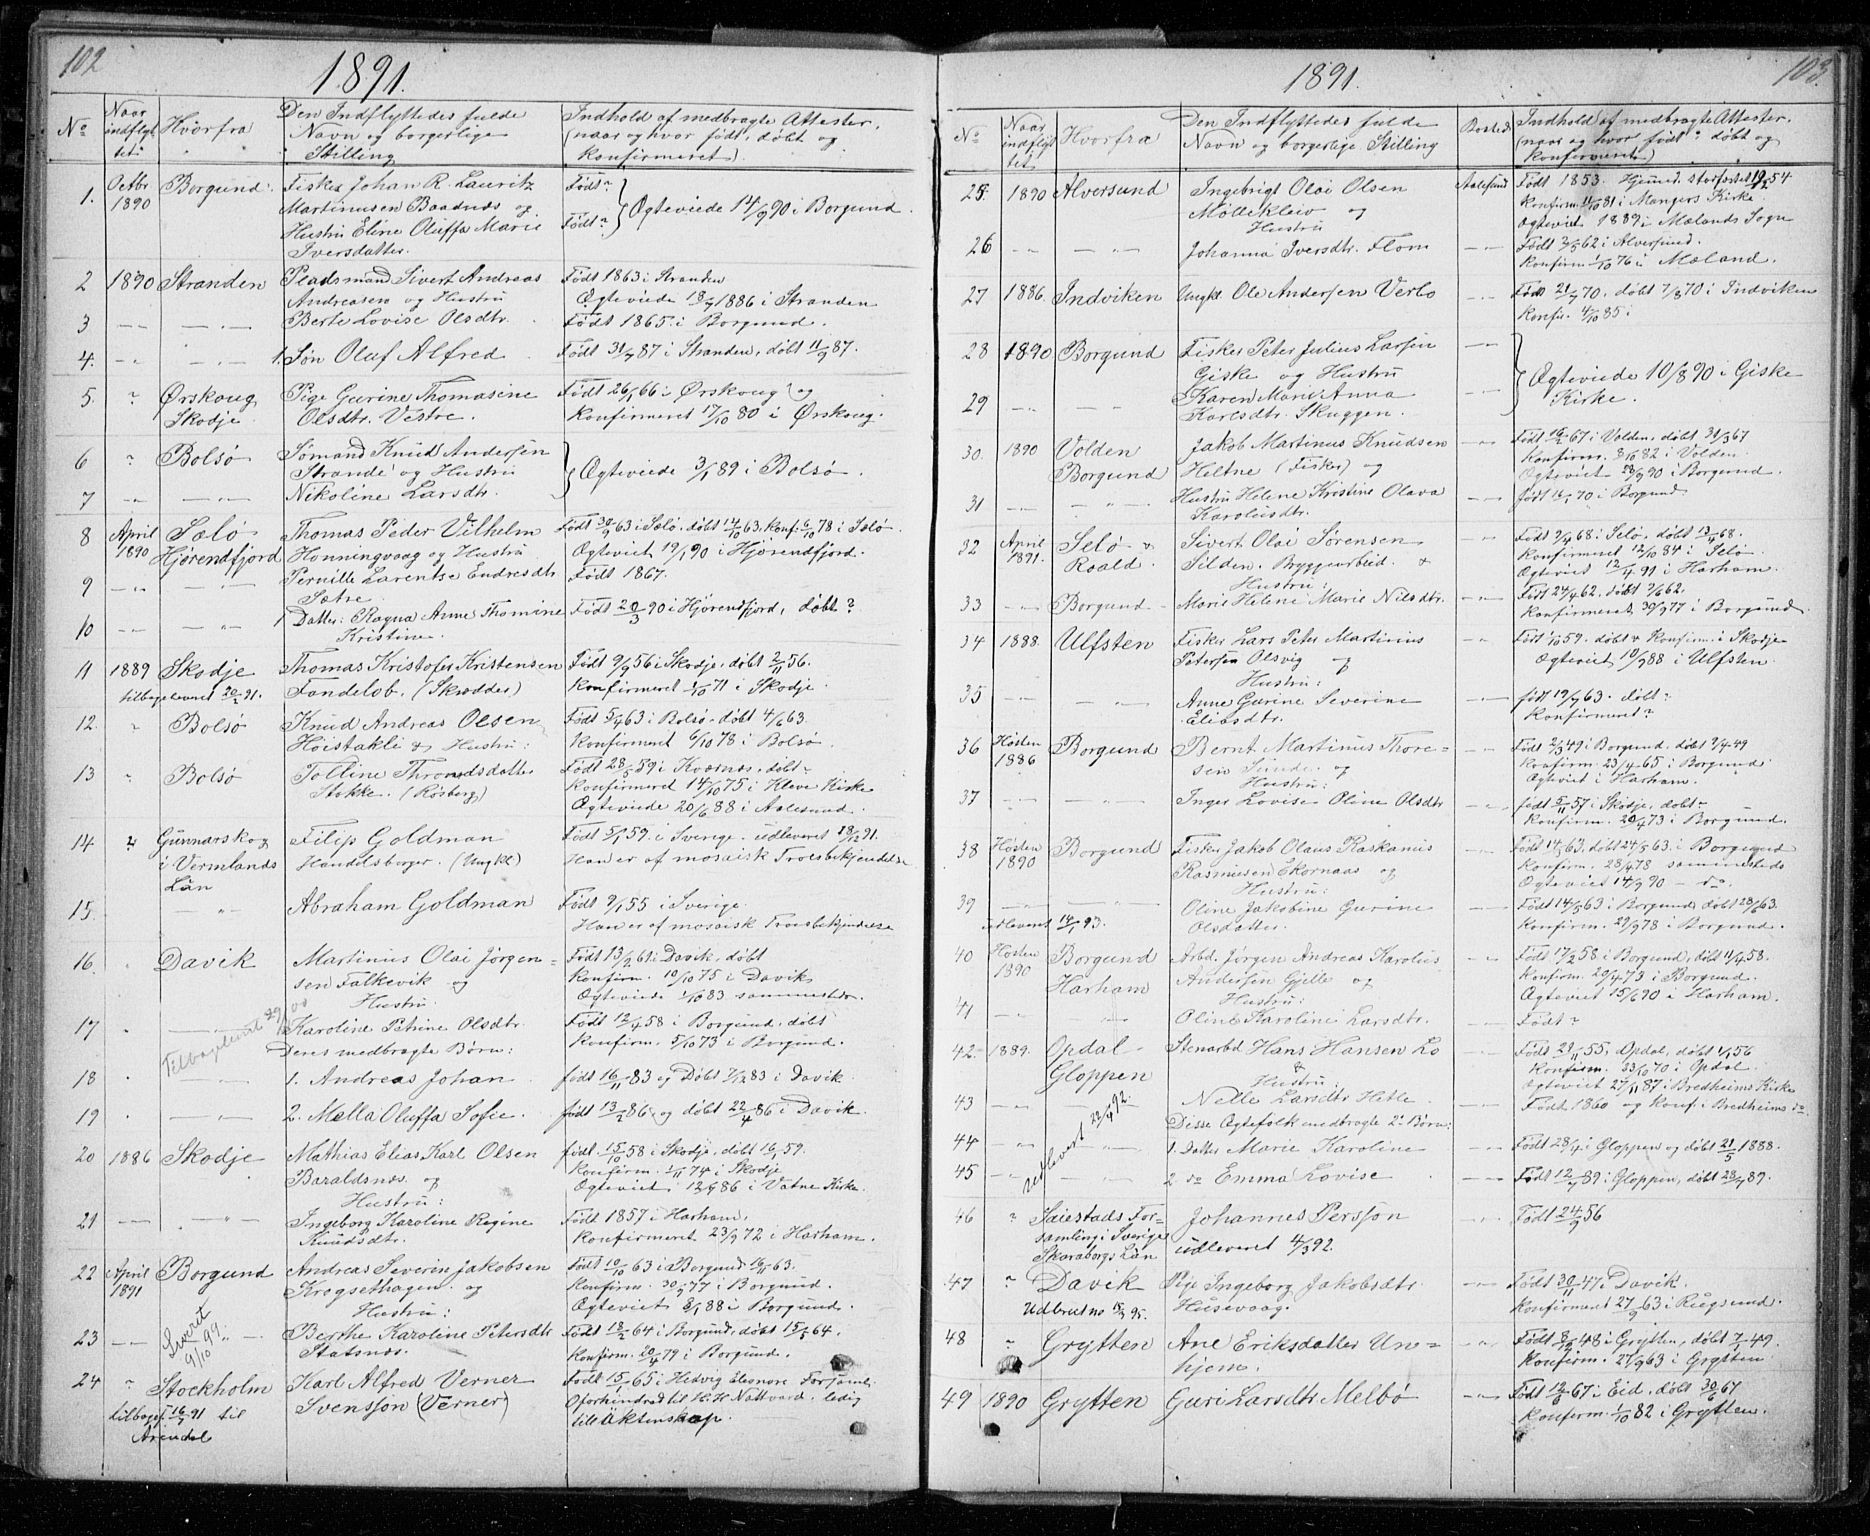 102
1891.
No
Naar indflyttet
Hvorfra
Den Indflyttedes fulde Navn og borgerlige Stilling
Indhold af medbragte Attester, (naar og hvor født, døbt og konfirmeret).
1. Octbr 1890 Borgund. Fisker Johan R. Lauritz Født?
Martinusen Baadnæs og Ægteviede 14/9 90 i Borgund.
Hustru Eline Oluffa Marie Født?
Iversdatter.
2 1890 Stranden Pladsmand Sivert Andreas Født 1863 i Stranden
Andreasen og Hustru Ægteviede 18/7 1886 i Stranden
3 Berte Lovise Olsdtr. Født 1865 i Borgund.
4. 1. Søn Oluf Alfred Født 31/7 87 i Stranden, døbt 11/9 87.
5. " Ørskoug Pige Gurine Thomasine Født 26/1 66 i Ørskoug og
Skodje. Olsdtr. Vestre. konfirmeret 17/10 80 i Ørskoug.
6 " Bolsø Sømand Knud Andersen
Strande og Hustru Ægteviede 3/1 89 i Bolsø
7 Nikoline Larsdtr.
8 April 1890 Sælø Thomas Peder Vilhelm Født 30/9 63 i Sælø, døbt 14/10 63, konf. 6/10 78 i Sælø.
Hjørendfjord Honningvaag og Hustru Ægteviet 19/1 90 i Hjørendfjord.
9 Pernille Larentse Endresdtr Født 1867.
Sætre
10 1 Datter: Ragna Anne Thomine Født 20/3 90 i Hjørendfjord, døbt?
Kristine.
11 1889 Skodje Thomas Kristofer Kristensen Født 9/9 56 i Skodje, døbt 2/11 56.
tilbageleveret 20/2 91. Fandelob. (Skrædder) konfirmeret 1/10 71 i Skodje.
12. " Bolsø Knud Andreas Olsen Født 5/4 63 i Bolsø. døbt 4/6 63.
Høistakli & Hustru: konfirmeret 6/10 78 i Bolsø.
13 " Bolsø Tolline Throndsdatter Født 28/5 59 i Kvernæs, døbt
Stokke. (Røsberg) konfirmeret 14/10 75 i Kleve Kirke
Ægteviede 20/6 88 i Aalesund.
14. " Gunnarskog Filip Goldman Født 5/1 59. i Sverige. udleveret 18/12 91.
i Vermlands Handelsborger. (Ungkl) Han er af mosaisk Troesbekjendelse
Län
15. Abraham Goldman Født 9/1 55 i Sverige
Han er af mosaisk Troesbekjendelse
16. Davik Martinus Olai Jørgen= Født 13/2 61 i Davik, døbt
sen Falkevik og konfirm. 10/10 75 i Davik,
Hustru. Ægteviede 1/10 83 sammesteds.
17 Karoline Petrine Olsdtr. Født 12/4 58 i Borgund, døbt
Tilbagelevert 29/1 00
Deres medbragte Børn: konfirm. 5/10 73 i Borgund.
18 1. Andreas Johan født 16/11 83 og Døbt 2/12 83 i Davik.
19 2. Mælla Oluffa Sofie. født 13/2 86 og døbt 22/4 86 i Davik.
20 1886 Skodje Mathias Elias Karl Olsen født. 15/10 58 i Skodje, døbt 16/1 59.
Baraldsnæs og konfirm. 1/11 74 i Skodje
Hustru: Ægteviet 12/9 86 i Vatne Kirke.
21 Ingeborg Karoline Regine Født 1857 i Harham,
Knudsdtr. konfirmeret 23/9 72 i Harham.
22 April 1891 Borgund Andreas Severin Jakobsen Født 10/10 63 i Borgund 16/11 63.
Krogsethagen og konfirm. 30/9 77 i Borgund.
Hustru: Ægteviet 8/1 88 i Borgund.
Leverit 9/10 99.
23 Berthe Karoline Petersdtr Født 18/2 64 i Borgund, døbt 15/5 64.
Statsnæs. konfirm. 20/4 79 i Borgund.
24 " Stockholm Karl Alfred Verner Født 15/5 65 i Hedvig Eleonore Forsamli.
tilbagef. 16/7 91 til Svensson (Verner) Oforhindrad til H.H. Nattvard, ledig
Arendal till Äktenskap.
103.
1891.
No
Naar indflyttet
Hvorfra
Den Indflyttedes fulde Navn og borgerlige Stilling
Bosted
Indhold af medbragte Attester, (naar og hvor født, døbt og konfirmeret)
25. 1890 Alversund Ingebrigt Olai Olsen Aalesund Født 1853. Hjemd. storfastet 19/2 54
Møllekleiv og konfirm. 11/10 81 i Mangers Kirke.
Hustru Ægteviet 1889 i Mælands Sogn
26 Johanna Iversdtr. Flom Født 3/5 62 i Alversund.
konfirm 1/10 76 i Mæland.
27 1886. Indviken Ungkl. Ole Andersen Verlo Født 21/7 70, døbt 7/8 70 i Indviken
konfir. 4/10 85.
28 1890 Borgund Fisker Peter Julius Larsen
Giske og Hustru Ægteviede 10/8 90 i Giske
29 Karen Marie Anna Kirke.
Karlsdtr. Skuggen.
30. 1890 Volden Jakob Martinus Knudsen Født 16/2 67 i Volden, døbt 31/3 67
Borgund Heltne (Fisker) og Konfirm. 8/10 82 i Volden
Ægteviet 28/9 90 i Borgund.
31 Hustru Helene Kristine Olava født 16/1 70 i Borgund
Karolusdtr.
32 April 1891. Selø & Sivert Olai Sørensen Født 9/4 68 i Selø, døbt 13/4 68.
Roald. Silden. Bryggearbeid. & konfirmeret 12/10 84 i Selø
Hustru: Ægteviet 12/4 91 i Harham.
33 Borgund Marie Helene Marie Nilsdtr. Født 24/4 62, døbt 9/6 62.
konfirmeret 30/9 77 i Borgund.
34 1888. Ulfsten Fisker Lars Peter Martinius Født 1/10 59. døbt & konfirm. i Skodje
Petersen Olsvig og Ægteviet 10/9 88 i Ulfsten.
Hustru:
35 Anne Gurine Severine født 19/7 63. døbt?
Eliasdtr. konfirmeret?
36 Høsten 1886 Borgund Bernt Martinus Thore= Født 2/3 49 i Borgund, døbt 9/4 49
sen Sunde og konfirm. 23/4 65 i Borgund
Hustru: Ægteviet i Harham.
37 Inger Lovise Oline Olsdtr født 5/11 57 i Skodje, døbt
konfirm. 20/4 73 i Borgund.
38 Høsten 1890 Borgund Fisker Jakob Olaus Raskanius Født 14/3 63, døbt 24/5 63. i Borgund
Rasmusen Ekornaas og konfirm. 28/4 78 sammesteds
Hustru: Ægteviet 14/9 90 - do.
39 Oline Jakobine Gurine Født 14/5 63 i Borgund, døbt 28/6 63.
udleveret 14/1 93. Olsdatter. konfirm. 29/9 78 i Borgund.
40 Høsten 1890 Borgund Arbd. Jørgen Andreas Karolus Født 17/2 58 i Borgund, døbt 11/4 58.
Harham Andersen Gjelle og konfirm. 20/4 73 i Borgund.
Hustru: Ægteviet 15/6 90 i Harham.
41 Oline Karoline Larsdtr. Født?
42. 1889. Opdal Stenarbd Hans Hansen Lo Født 29/11 55, Opdal, døbt 1/1 56
Gloppen & konfirm. 23/10 70 i Opdal
Hustru Ægteviet 27/11 87 i Bredheims Kirke
43 Nelle Larsdtr Hetle Født 1860 og konf. i Bredheims do
Disse Ægtefolk medbragte 2 Børn:
udlevert 23/4 92.
44 1. Datter Marie Karoline Født 28/4 i Gloppen og døbt 21/5 1888.
45 2 do Emma Lovise Født 12/7 89 i Gloppen, døbt 28/7 89.
46 " Saiestads For= Johannes Persson Født 24/9 56
samling i Sverige udleveret 4/3 92.
Skaraborgs Län
47 " Davik Pige Ingeborg Jakobsdtr. Født 30/11 47 i Davik.
Udbrut no 15/3 95. Husevaag. konfirmeret 27/9 63 i Rugsund.
48 " Grytten Ane Eriksdatter Un= Født 8/12 48 i Grytten, døbt 7/1 49.
hjem. konfirm. 27/9 63 i Grytten
49 1890 Grytten Guri Larsdtr Melbø Født 12/6 67 i Eid, døbt 30/6 67
konfirm. 1/10 82 i Grytten.